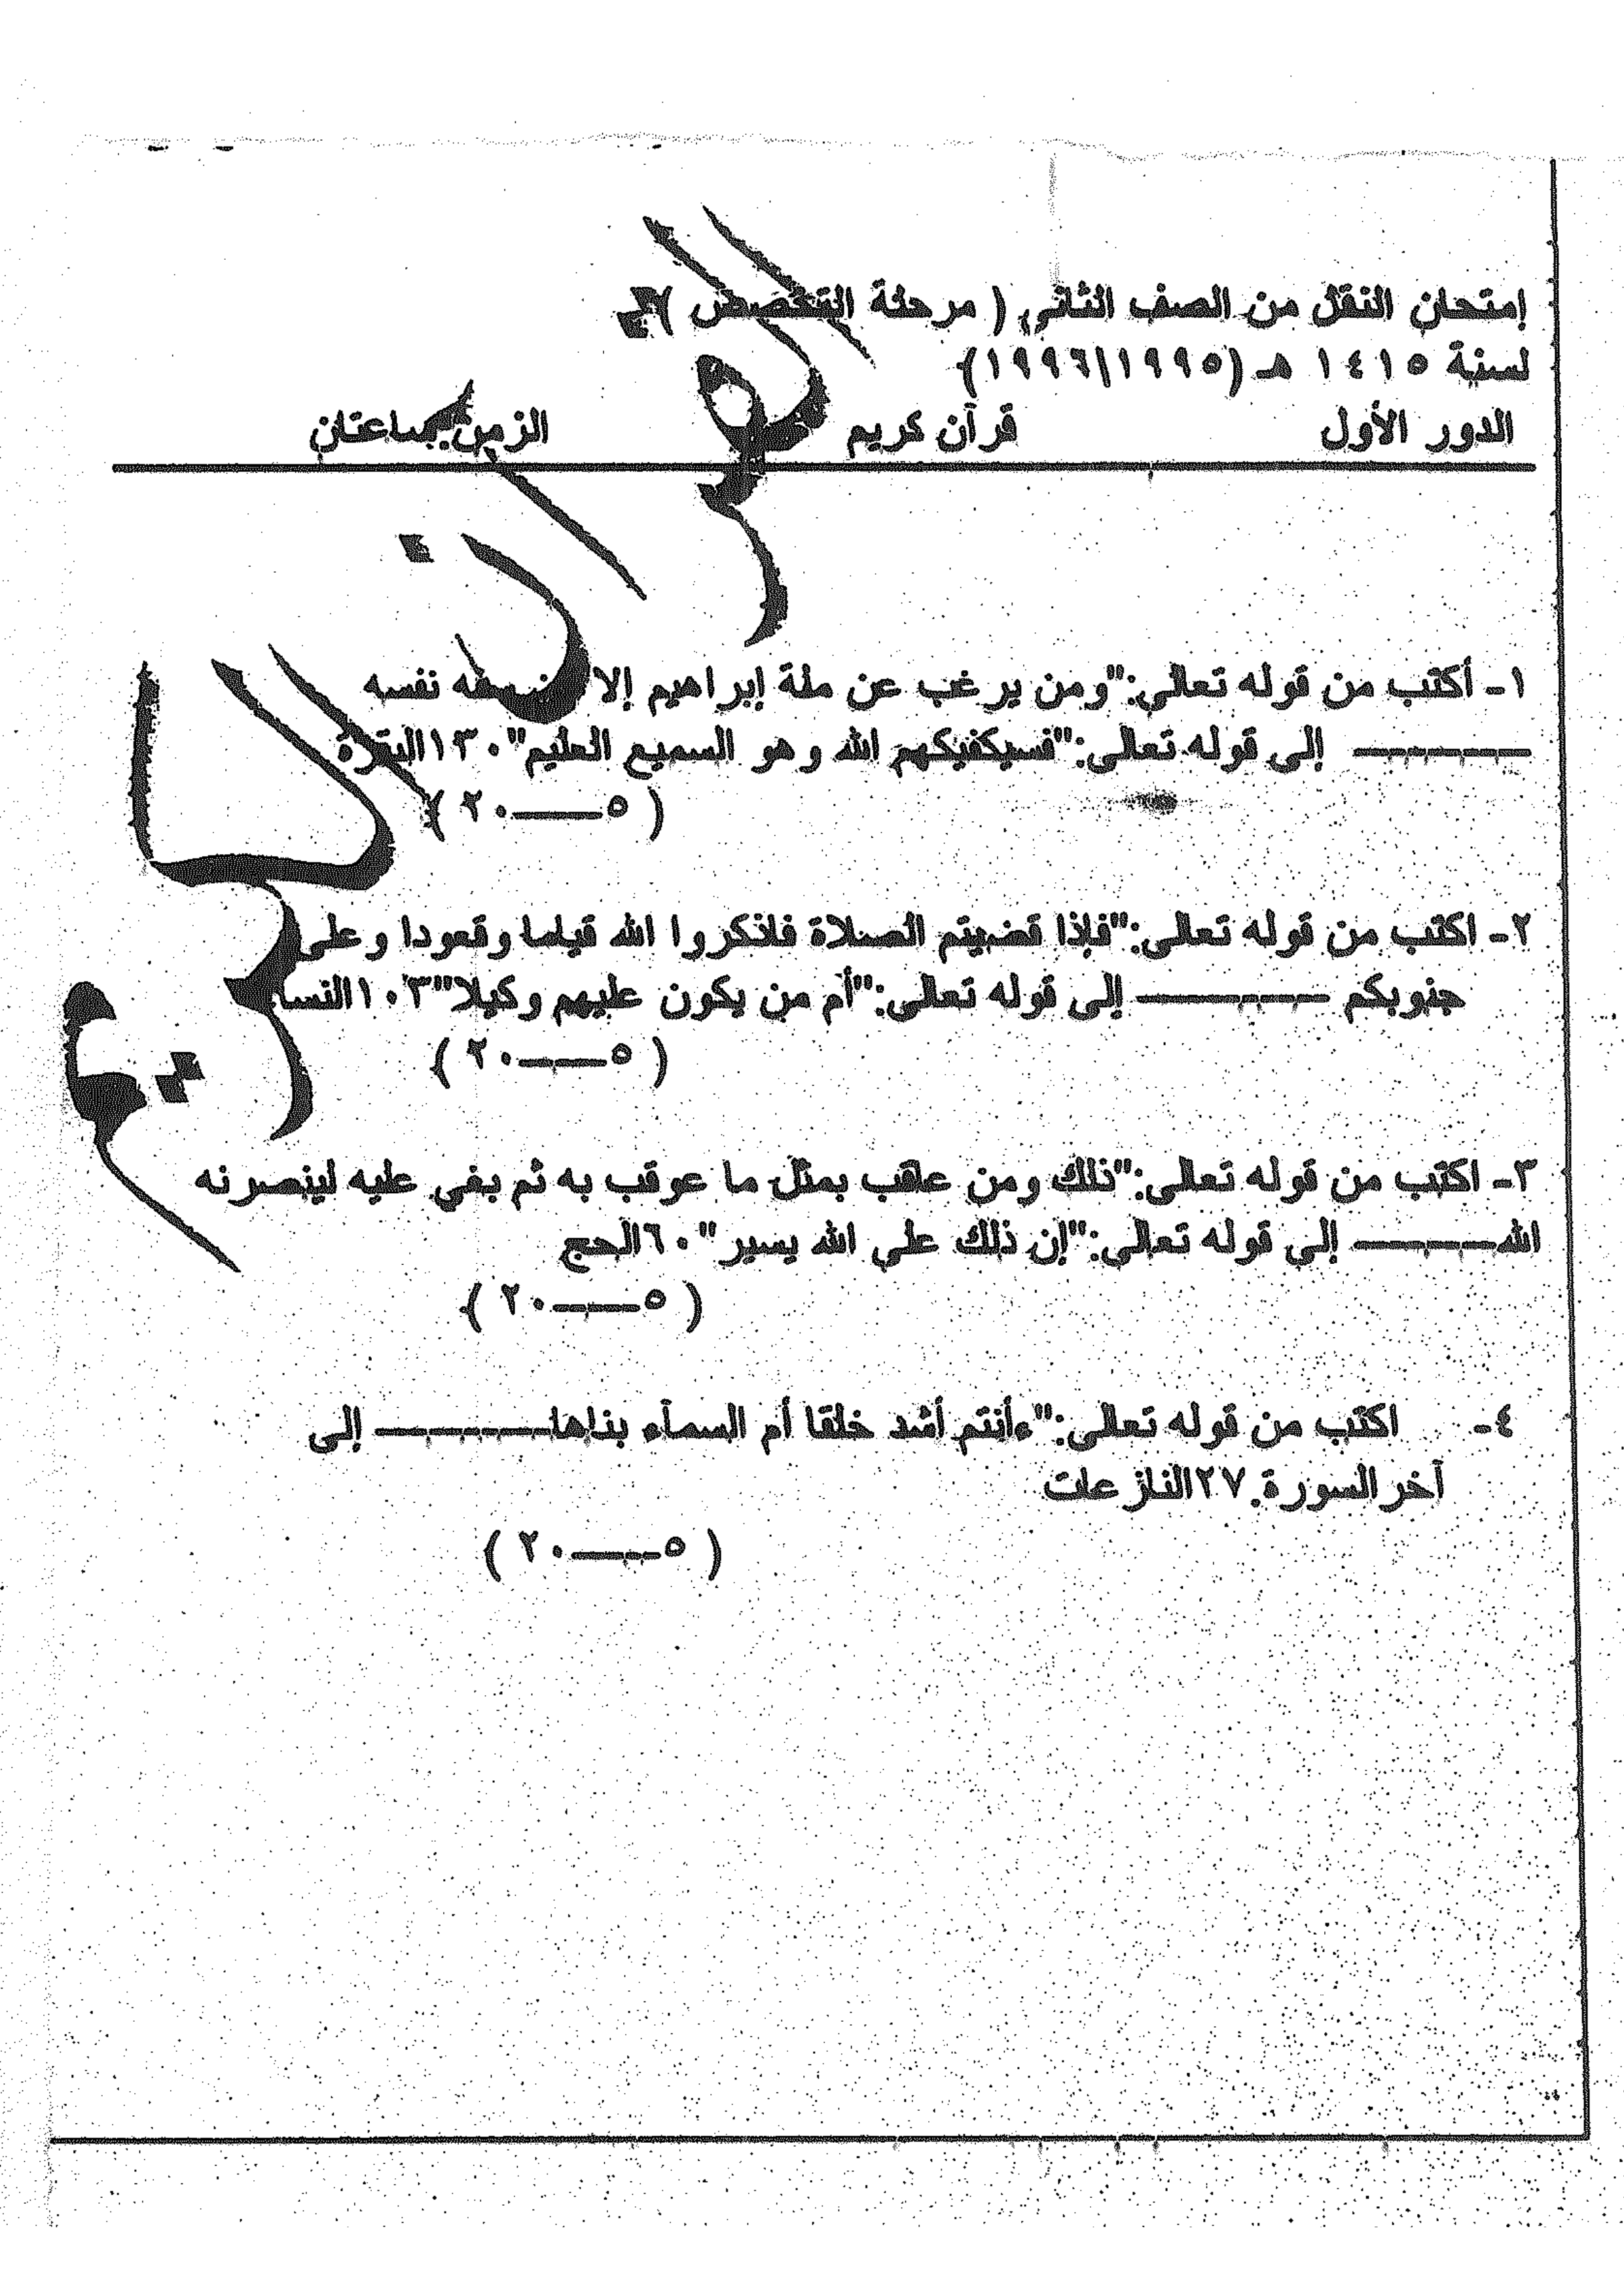 إمتحان النقل من الصف الثانى ( مرحلة التخصص )
لسنة ١٤١٥ هـ (١٩٩٦/١٩٩٥)
الدور الأول قرآن كريم الزمن ساعتان
القرآن الكريم
١- أكتب من قوله تعالى:"ومن يرغب عن ملة إبراهيم إلا من سفه نفسه
ــــــــــ إلى قوله تعالى:"فسيكفيكهم الله وهو السميع العليم"١٣٠البقرة
( ٥ـــــ٢٠ )
٢- اكتب من قوله تعالى:"فإذا قضيتم الصلاة فاذكروا الله قياما وقعودا وعلى
جنوبكم ــــــــــ إلى قوله تعالى:"أم من يكون عليهم وكيلا"١٠٣النسا
( ٥ـــــ٢٠ )
٣- اكتب من قوله تعالى:"ذلك ومن عاقب بمثل ما عوقب به ثم بغي عليه لينصرنه
اللهــــــــ إلى قوله تعالى:"إن ذلك على الله يسير"٦٠الحج
( ٥ـــــ٢٠ )
٤- اكتب من قوله تعالى:"ءأنتم أشد خلقا أم السمآء بناهاــــــــــ إلى
آخر السورة.٢٧النازعات
( ٥ـــــ٢٠ )